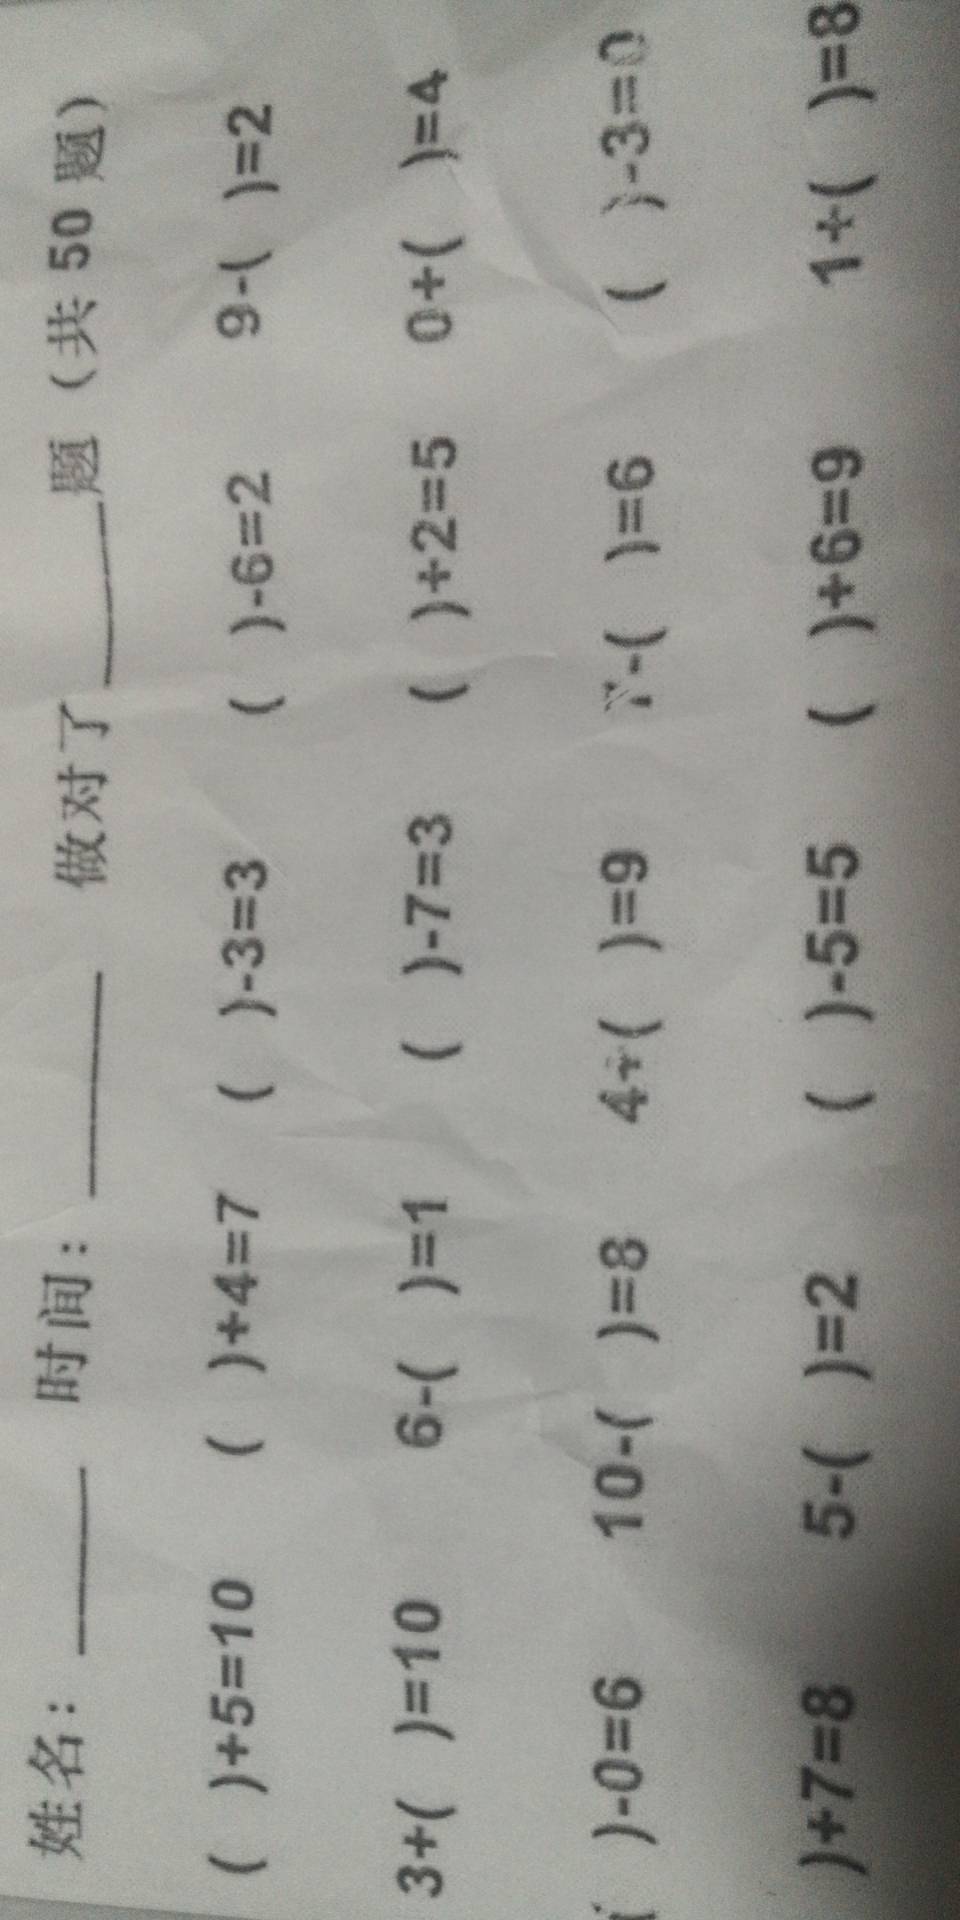 姓名：______ 时间：______ 做对了______题（共 50 题）
( )+5=10 ( )+4=7 ( )-3=3 ( )-6=2 9-( )=2
3+( )=10 6-( )=1 ( )-7=3 ( )+2=5 0+( )=4
( )-0=6 10-( )=8 4+( )=9 7-( )=6 ( )-3=0
)+7=8 5-( )=2 ( )-5=5 ( )+6=9 1+( )=8